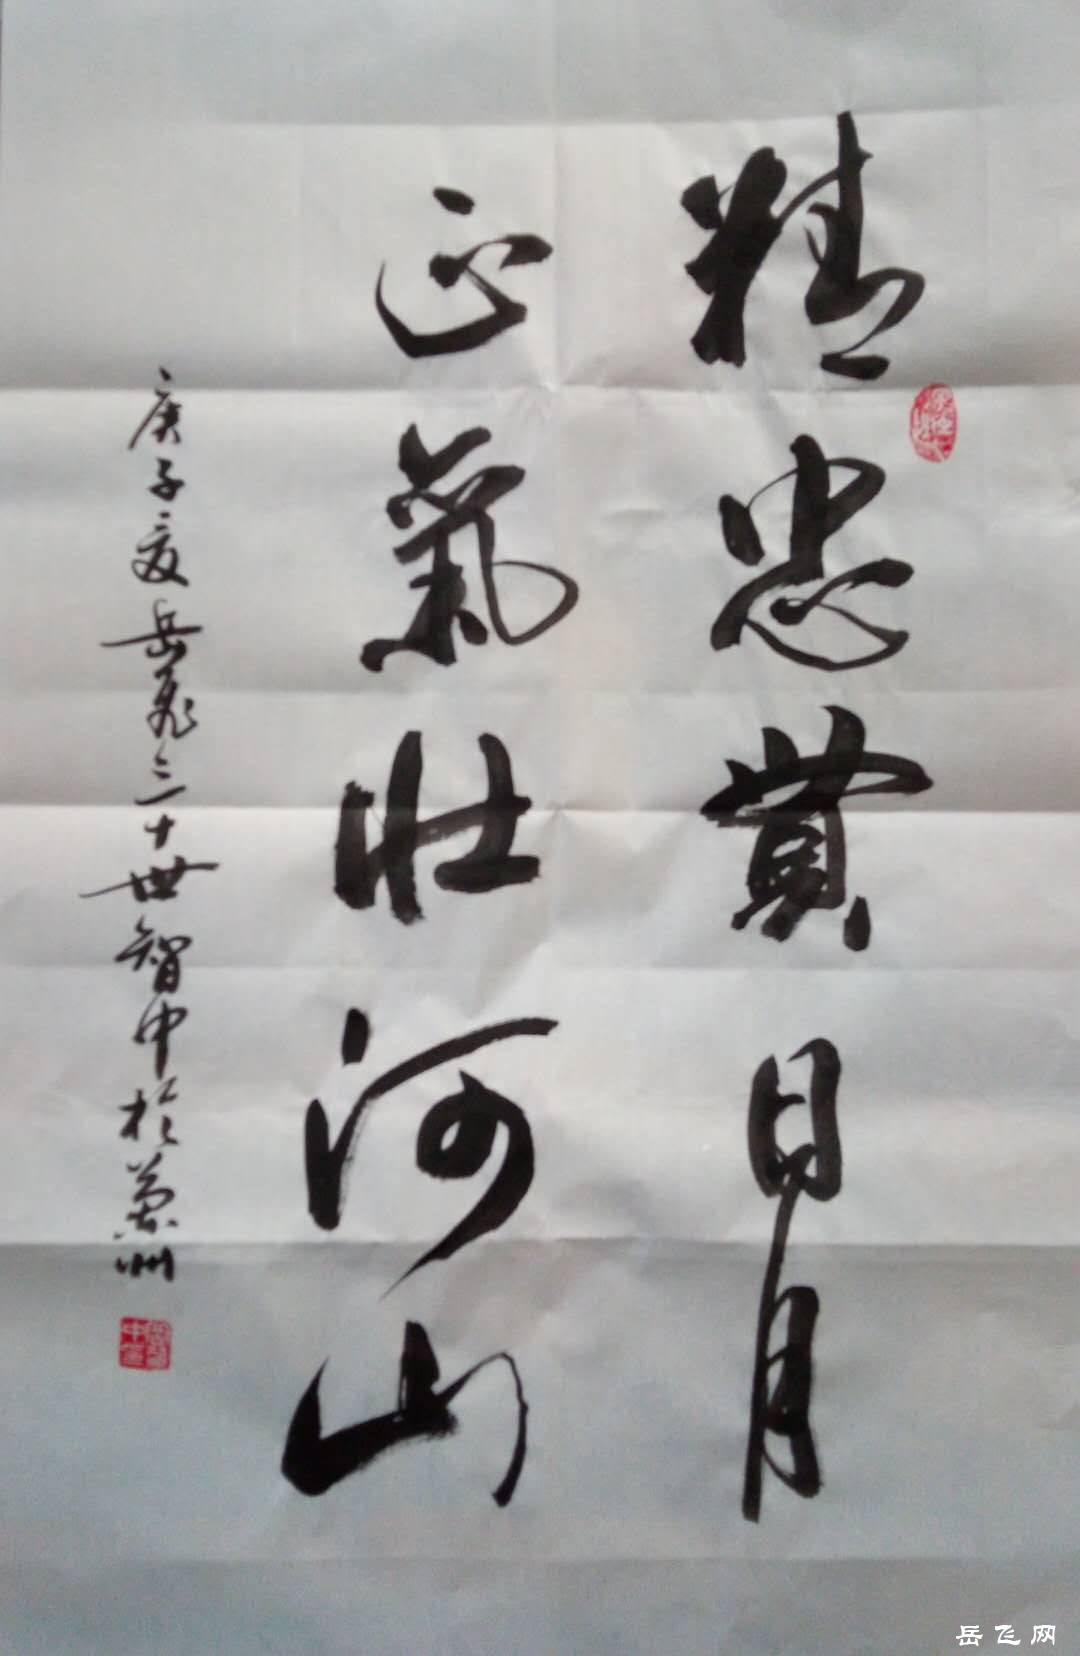 精忠贯日月
正氣壮河山
庚子夏岳飛三十世智中於蘭州
岳飞网